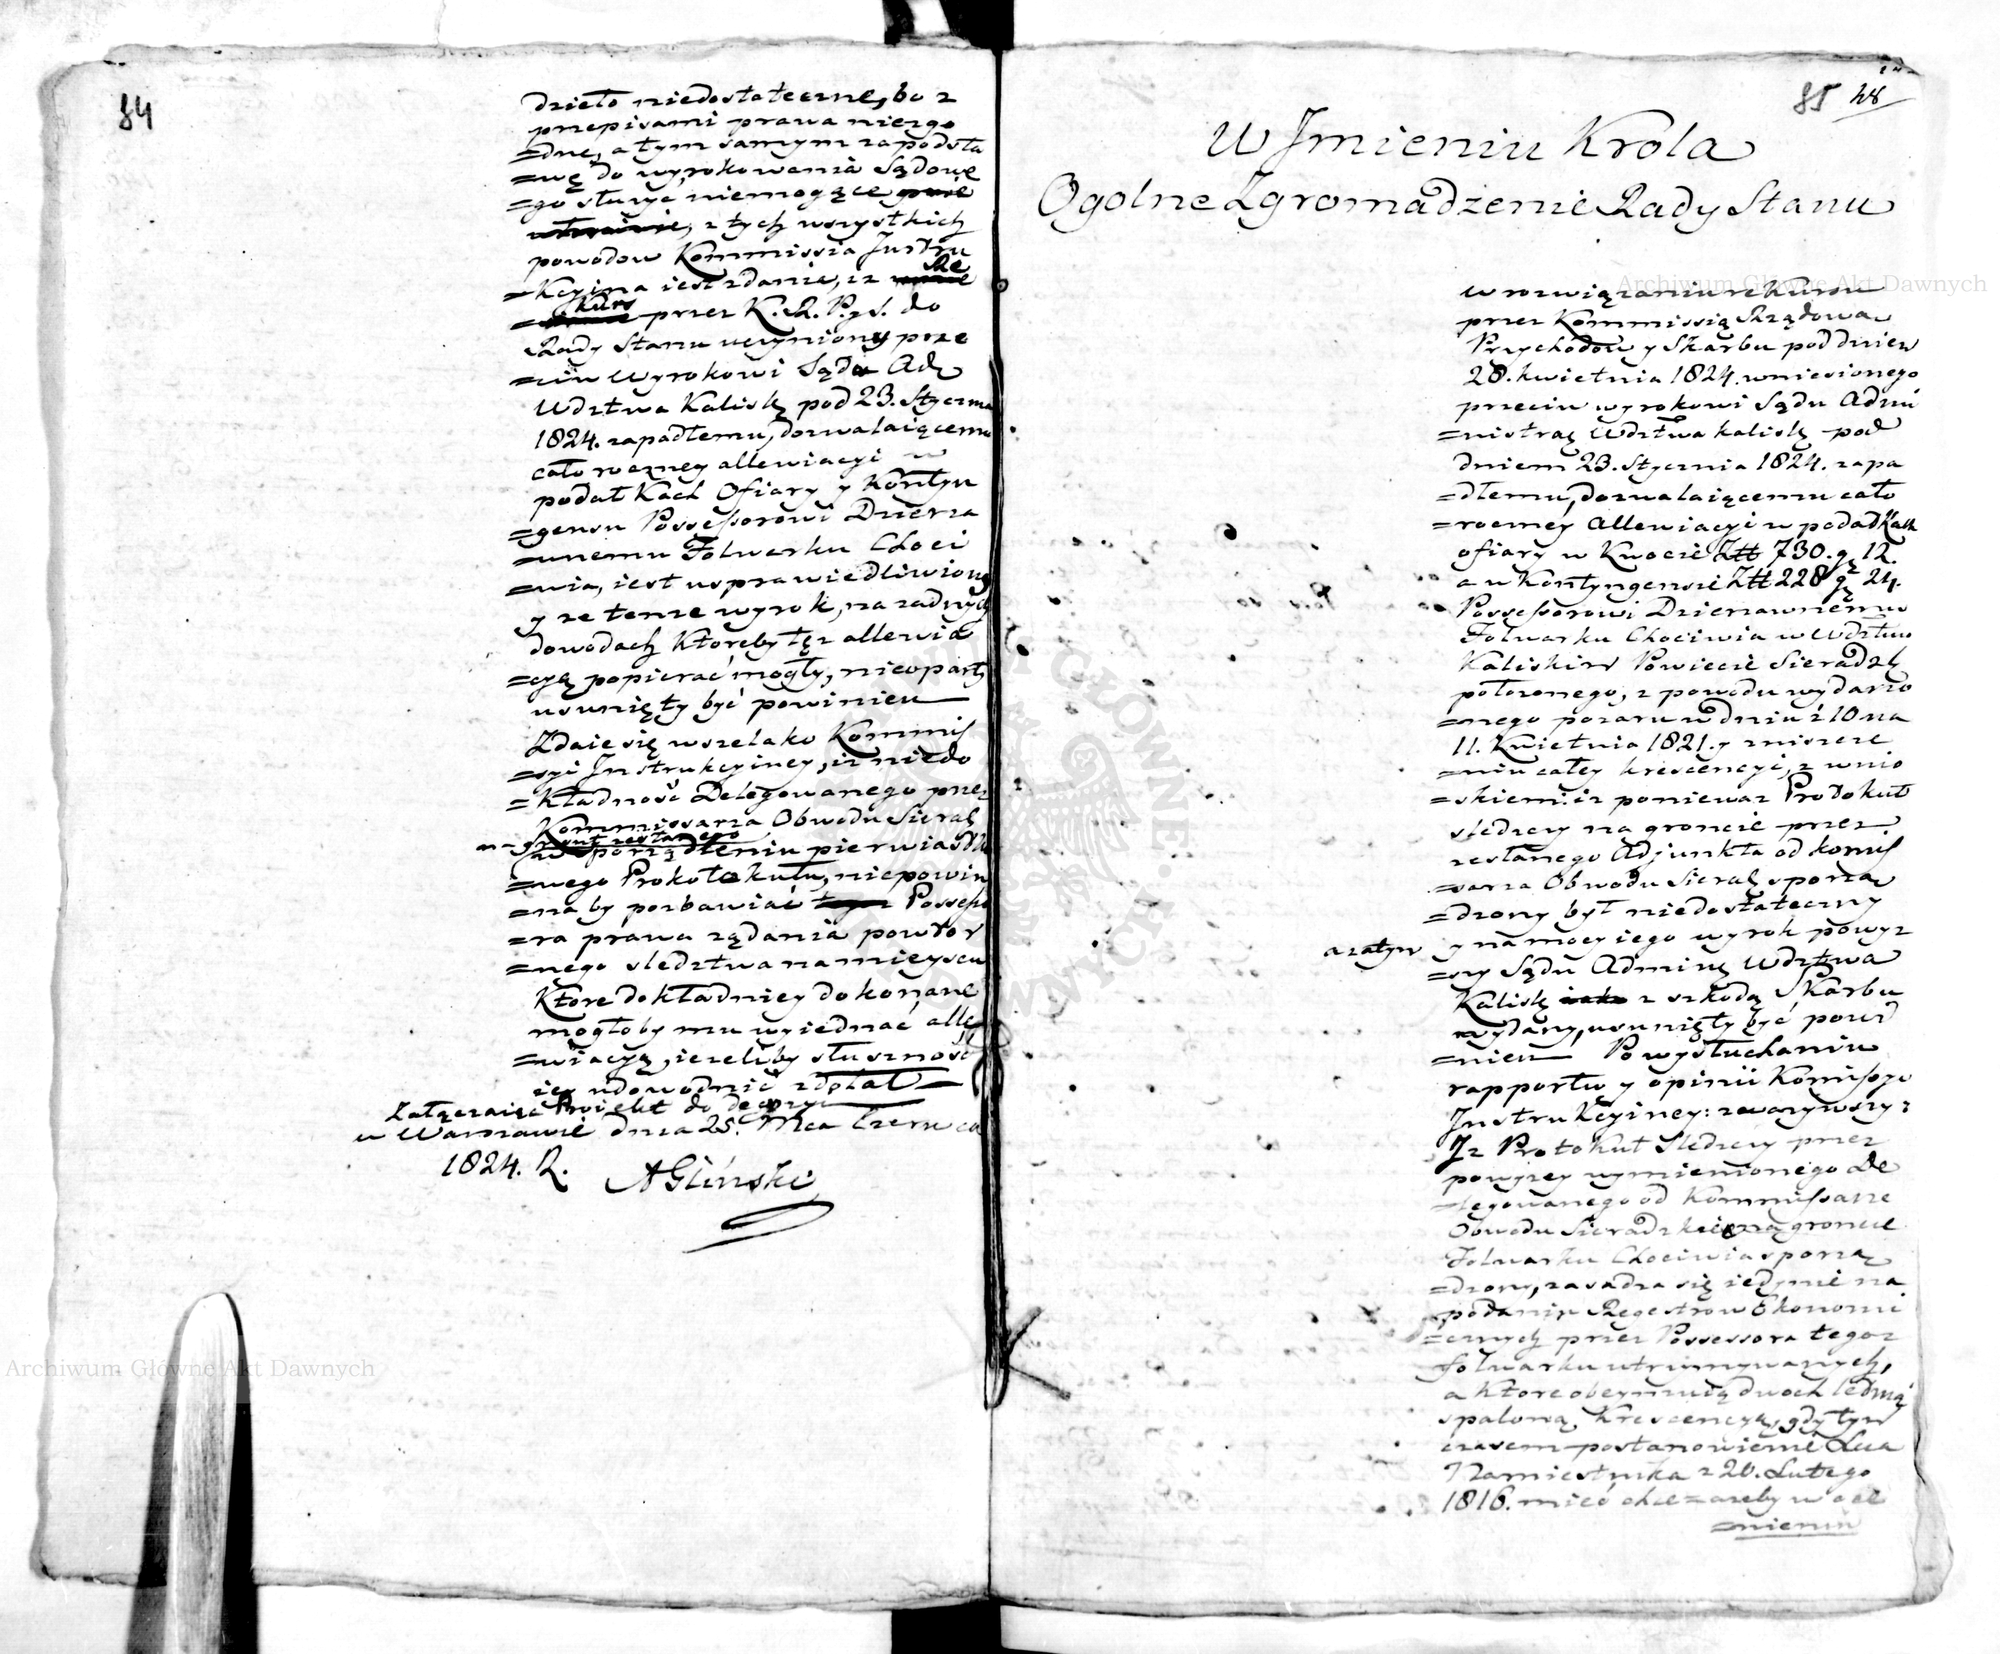 84
dzieło niedostateczne, bo z
przepisami prawa niezgo
=dne, a tym samym za podsta
=wę do wyrokowania Sądowe
=go służyć niemogące
z tych wszystkich
powodow Kommissia Instru
=kcyina iest zdanie, iż Re
=kurs przez K. R. P. y S. do
Rady Stanu uczyniony prze
=ciw Wyrokowi Sądu Ad
Wdztwa Kalisk pod 23. Stycznia
1824. zapadłemu, dozwalaiącemu
cało roczney allewiacyi w
podatkach Ofiary y Kontyn
=gensu Possessorowi Dzierza
=wnemu Folwarku Choci
=wia, iest usprawiedliwiony
y że tenże wyrok, na żadnych
dowodach któreby tęż allewia
=cyą popierać mogły, nieoparty
usunięty być powinien
Zdaie się wszelako Kommis
=syi Instrukcyiney, iż niedo
=kładność Delegowanego przez
Kommissarza Obwodu Sieradz
na grunt zesłanego
w sporządzeniu pierwiastko
=wego Protokołu, niepowin
=na by pozbawiać Possesso
=ra prawa żądania powtor
=nego sledztwa na mieyscu
które dokładniey dokonane
mogłoby mu wyiednać alle
=wiacyą, ieżeliby słuszność
iey udowodnić zdołał
Załączaiąc Proiekt do decyzyi
w Warszawie dnia 25. Mca Czerwca
1824. R. AGliński
85 48
W Jmieniu Krola
Ogolne Zgromadzenie Rady Stanu
w rozwiązaniu rekursu
przez Kommissią Rządową
Przychodow y Skarbu pod dniem
28. kwietnia 1824. wniesionego
przeciw wyrokowi Sądu Admi
=nistrac Wdztwa kalisk pod
dniem 23. Stycznia 1824. zapa
=dłemu, dozwalaiącemu cało
=roczney Allewiacyi w podatkach
ofiary w kwocie Zł 730. gr 12.
a w kontyngensie Zł 228 gr 24.
Possessorowi Dzierzawnemu
Folwarku Chociwia w Wdztwie
Kaliskim Powiecie Sieradzk
położonego, z powodu wydarzo
=nego pożaru w dniu z 10 na
11. Kwietnia 1821. y zniszcze
=niu całey krescencyi, z wnio
=skiem: iż ponieważ Protokuł
sledczy na gróncie przez
zesłanego Adjunkta od komis
=sarza Obwodu Sieradz sporzą
=dzony był niedostateczny
a zatym y na mocy iego wyrok powyż
=szy Sądu Adminis Wdztwa
Kalisk z szkodą Skarbu
wydany, usunięty być powi
=nien Po wysłuchaniu
rapportu y opinii Komissyi
Instrukcyiney: zważywszy:
Iż Protokuł Sledczy przez
powyżey wymienionego De
=legowanego od Kommissarza
Obwodu Sieradzkiego na gróncie
Folwarku Chociwia sporzą
=dzony, zasadza się iedynie na
podaniu Regestrow Ekonomi
=cznych przez Possessora tegoż
folwarku utrzymywanych,
a które obeymuią dwoch letnią
spaloną krescencyą, gdy tym
czasem postanowienie Xcia
Namiestnika z 20. Lutego
1816. mieć chce ażeby w oce
=nieniu
Archiwum Główne Akt Dawnych
Archiwum Główne Akt Dawnych